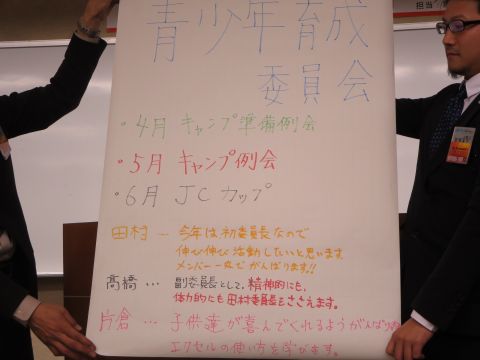 青少年育成
委員会
・4月 キャンプ準備例会
・5月 キャンプ例会
・6月 JCカップ
田村 … 今年は初委員長なので
伸び伸び活動したいと思います
メンバー一丸でがんばります!!
高橋 … 副委員長として、精神的にも、
体力的にも田村委員長をささえます。
片倉 … 子供達が喜んでくれるようがんばり
エクセルの使い方を学びます。
担当